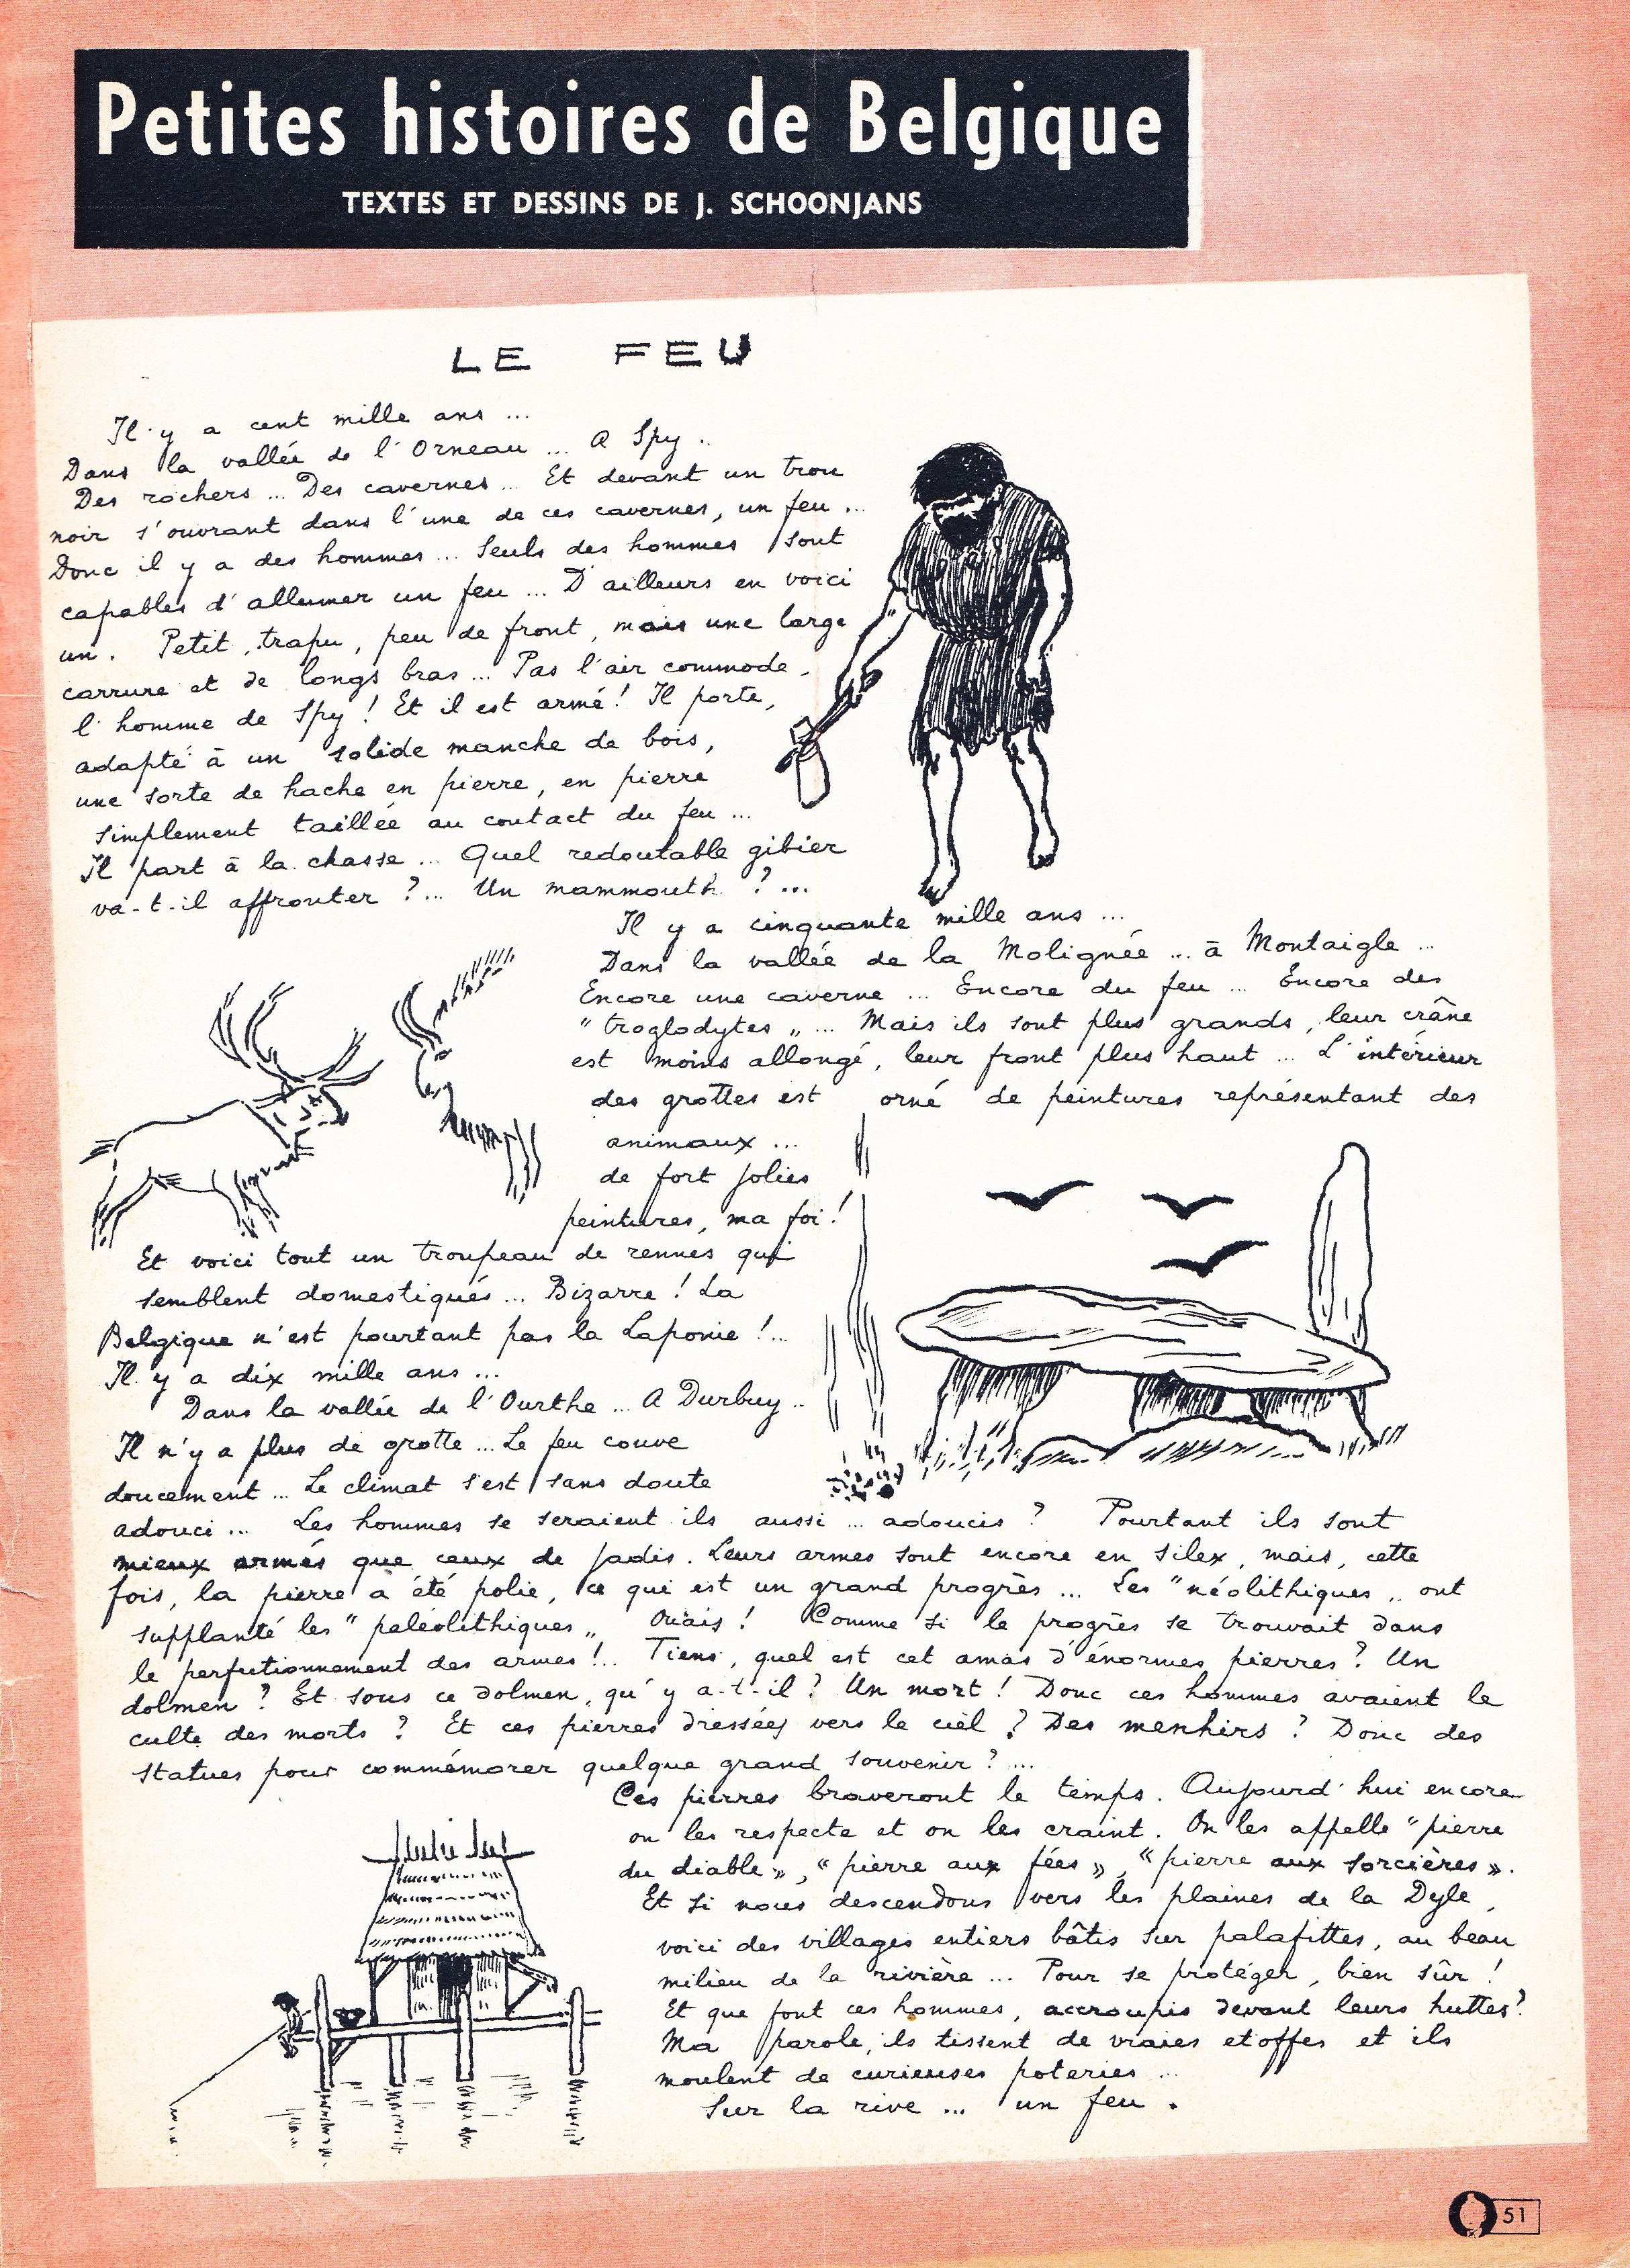 Petites histoires de Belgique
TEXTES ET DESSINS DE J. SCHOONJANS
LE FEU
Il y a cent mille ans ...
Dans la vallée de l'Orneau ... A Spy ..
Des rochers ... Des cavernes ... Et devant un trou
noir s'ouvrant dans l'une de ces cavernes, un feu ...
Donc il y a des hommes ... Seuls des hommes sont
capables d'allumer un feu ... D'ailleurs en voici
un. Petit, trapu, peu de front, mais une large
carrure et de longs bras ... Pas l'air commode,
l'homme de Spy ! Et il est armé ! Il porte,
adapté à un solide manche de bois,
une sorte de hache en pierre, en pierre
simplement taillée au contact du feu ...
Il part à la chasse ... Quel redoutable gibier
va-t-il affronter ? ... Un mammouth ? ...
Il y a cinquante mille ans ...
Dans la vallée de la Molignée ... à Montaigle ...
Encore une caverne ... Encore du feu ... Encore des
"troglodytes" ... Mais ils sont plus grands, leur crâne
est moins allongé, leur front plus haut ... L'intérieur
des grottes est orné de peintures représentant des
animaux ...
de fort jolies
peintures, ma foi !
Et voici tout un troupeau de rennes qui
semblent domestiqués ... Bizarre ! La
Belgique n'est pourtant pas la Laponie ! ...
Il y a dix mille ans ...
Dans la vallée de l'Ourthe ... A Durbuy ..
Il n'y a plus de grotte ... Le feu couve
doucement ... Le climat s'est sans doute
adouci ... Les hommes se seraient ils aussi ... adoucis ? Pourtant ils sont
mieux armés que ceux de jadis. Leurs armes sont encore en silex, mais, cette
fois, la pierre a été polie, ce qui est un grand progrès ... Les "néolithiques" ont
supplanté les "paléolithiques" Ouais ! Comme si le progrès se trouvait dans
le perfectionnement des armes ! .. Tiens, quel est cet amas d'énormes pierres ? Un
dolmen ? Et sous ce dolmen, qu'y a-t-il ? Un mort ! Donc ces hommes avaient le
culte des morts ? Et ces pierres dressées vers le ciel ? Des menhirs ? Donc des
statues pour commémorer quelque grand souvenir ? ...
Ces pierres braveront le temps. Aujourd'hui encore
on les respecte et on les craint. On les appelle "pierre
du diable", "pierre aux fées", "pierre aux sorcières".
Et si nous descendons vers les plaines de la Dyle,
voici des villages entiers bâtis sur palafittes, au beau
milieu de la rivière ... Pour se protéger, bien sûr !
Et que font ces hommes, accroupis devant leurs huttes ?
Ma parole, ils tissent de vraies etoffes et ils
moulent de curieuses poteries ...
Sur la rive ... un feu .
51